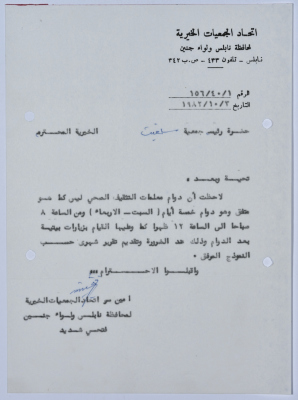 اتحاد الجمعيات الخيرية
لمحافظة نابلس ولواء جنين
نابلس - تلفون ٤٣٣ - ص.ب ٣٤٢
الرقم ١٥٦/٤٠/١
التاريخ ١٩٨٢/١٠/٢
حضرة رئيس جمعية سلفيت الخيرية المحترم
تحية وبعد ،
لاحظت أن دوام معلمات التثقيف الصحي ليس كما هو
متفق وهو دوام خمسة أيام ( السبت - الاربعاء ) ومن الساعة ٨
صباحا الى الساعة ١٢ ظهرا كما وعليها القيام بزيارات بيتية
بعد الدوام وذلك عند الضرورة وتقديم تقرير شهرى حسب
النموذج المرفق .
واقبلوا الاحترام ،،،
أمين سر اتحاد الجمعيات الخيرية
لمحافظة نابلس ولواء جنين
فتحي شديد